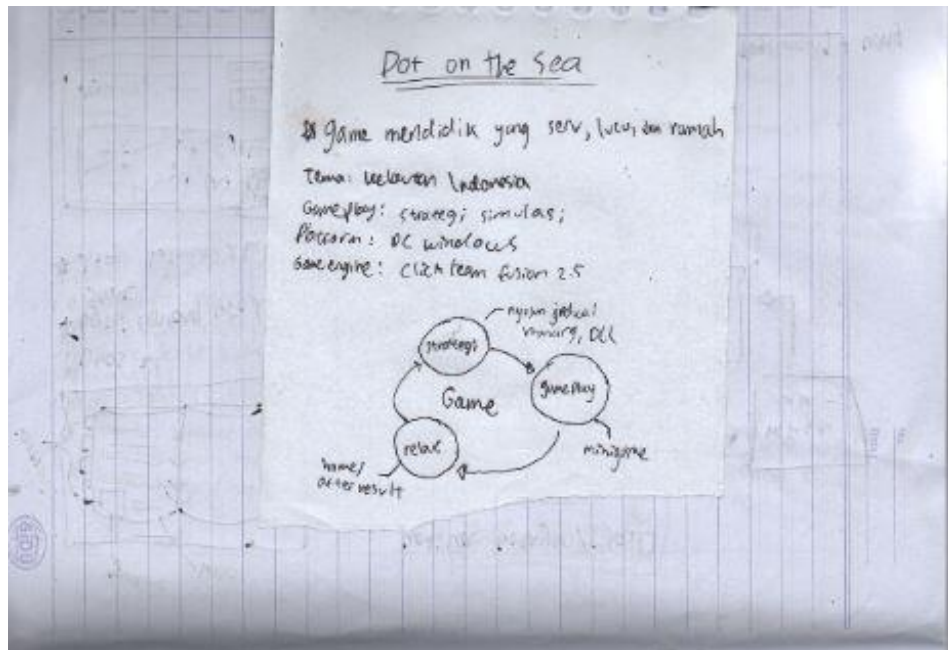 Dot on the Sea
game mendidik yang seru, lucu, dan ramah
Tema: kelautan Indonesia
Gameplay: strategi simulasi
Platform: PC windows
Game engine: Clickteam fusion 2.5
nyusun jadwal
mancing, DLL
strategi
gameplay
Game
relax
minigame
home/
after result